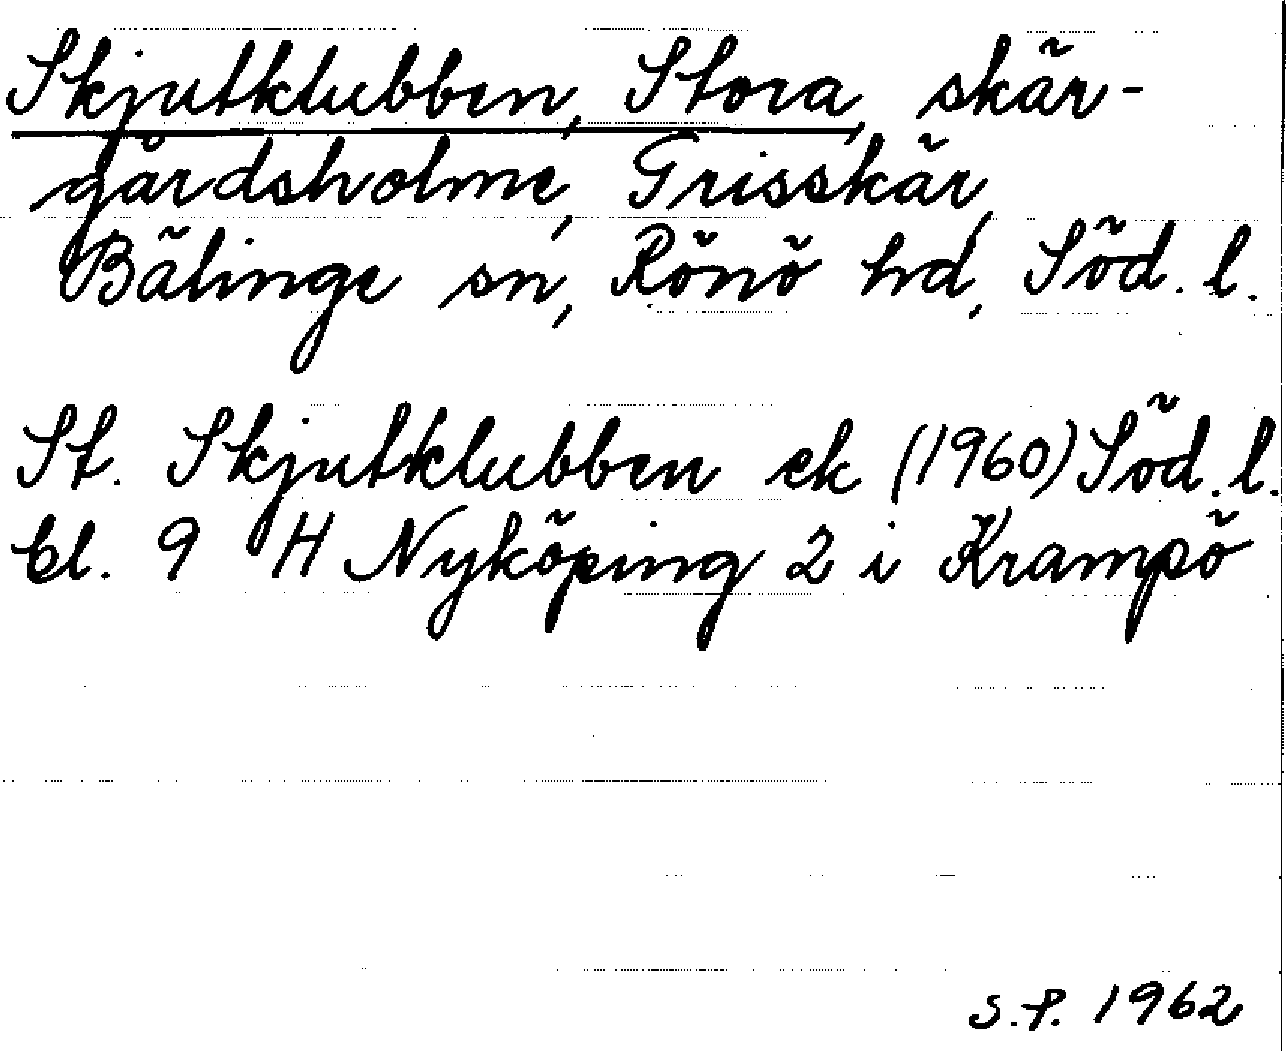 Skjutklubben, Stora, skär-
gårdsholme, Grisskär,
Bälinge sn, Rönö hd, Söd. l.
St. Skjutklubben ek (1960) Söd. l.
bl. 9 H Nyköping 2 i Krampö
S.P. 1962